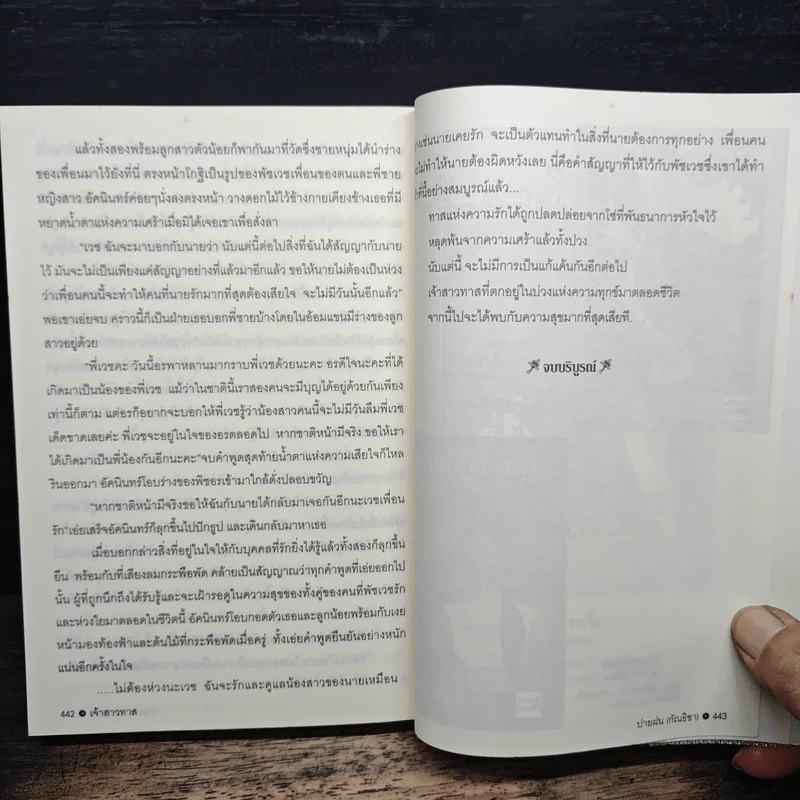 แล้วทั้งสองพร้อมลูกสาวตัวน้อยก็พากันมาที่วัดซึ่งชายหนุ่มได้นำร่าง
ของเพื่อนมาไว้ยังที่นี่ ตรงหน้าโกฐิเป็นรูปของพัชเวชเพื่อนของตนและพี่ชาย
หญิงสาว อัคนินทร์ค่อยๆนั่งลงตรงหน้า วางดอกไม้ไว้ข้างกายเคียงข้างเธอที่มี
หยาดน้ำตาแห่งความเศร้าเมื่อมิได้เจอเขาเพื่อสั่งลา
"เวช ฉันจะมาบอกกับนายว่า นับแต่นี้ต่อไปสิ่งที่ฉันได้สัญญากับนาย
ไว้ มันจะไม่เป็นเพียงแค่สัญญาอย่างที่แล้วมาอีกแล้ว ขอให้นายไม่ต้องเป็นห่วง
ว่าเพื่อนคนนี้จะทำให้คนที่นายรักมากที่สุดต้องเสียใจ จะไม่มีวันนั้นอีกแล้ว"
พอเขาเอ่ยจบ คราวนี้ก็เป็นฝ่ายเธอบอกพี่ชายบ้างโดยในอ้อมแขนมีร่างของลูก
สาวอยู่ด้วย
"พี่เวชคะ วันนี้อรพาหลานมากราบพี่เวชด้วยนะคะ อรดีใจนะคะที่ได้
เกิดมาเป็นน้องของพี่เวช แม้ว่าในชาตินี้เราสองคนจะมีบุญได้อยู่ด้วยกันเพียง
เท่านี้ก็ตาม แต่อรก็อยากจะบอกให้พี่เวชรู้ว่าน้องสาวคนนี้จะไม่มีวันลืมพี่เวช
เด็ดขาดเลยค่ะ พี่เวชจะอยู่ในใจของอรตลอดไป หากชาติหน้ามีจริง ขอให้เรา
ได้เกิดมาเป็นพี่น้องกันอีกนะคะ"จบคำพูดสุดท้ายน้ำตาแห่งความเสียใจก็ไหล
รินออกมา อัคนินทร์โอบร่างของพิชอรเข้ามาใกล้ดั่งปลอบขวัญ
"หากชาติหน้ามีจริงขอให้ฉันกับนายได้กลับมาเจอกันอีกนะเวชเพื่อน
รัก"เอ่ยเสร็จอัคนินทร์ก็ลุกขึ้นไปปักธูป และเดินกลับมาหาเธอ
เมื่อบอกกล่าวสิ่งที่อยู่ในใจให้กับบุคคลที่รักยิ่งได้รู้แล้วทั้งสองก็ลุกขึ้น
ยืน พร้อมกับที่เสียงลมกระพือพัด คล้ายเป็นสัญญาณว่าทุกคำพูดที่เอ่ยออกไป
นั้น ผู้ที่ถูกนึกถึงได้รับรู้และจะเฝ้ารอดูในความสุขของทั้งคู่ของคนที่พัชเวชรัก
และห่วงใยมาตลอดในชีวิตนี้ อัคนินทร์โอบกอดตัวเธอและลูกน้อยพร้อมกับเงย
หน้ามองท้องฟ้าและต้นไม้ที่กระพือพัดเมื่อครู่ ทั้งเอ่ยคำพูดยืนยันอย่างหนัก
แน่นอีกครั้งในใจ
.....ไม่ต้องห่วงนะเวช ฉันจะรักและดูแลน้องสาวของนายเหมือน
442 เจ้าสาวทาส
างเช่นนายเคยรัก จะเป็นตัวแทนทำในสิ่งที่นายต้องการทุกอย่าง เพื่อนคน
ะไม่ทำให้นายต้องผิดหวังเลย นี่คือคำสัญญาที่ให้ไว้กับพัชเวชซึ่งเขาได้ทำ
ที่นี้อย่างสมบูรณ์แล้ว...
ทาสแห่งความรักได้ถูกปลดปล่อยจากโซ่ที่พันธนาการหัวใจไว้
หลุดพ้นจากความเศร้าแล้วทั้งปวง
นับแต่นี้ จะไม่มีการเป็นแก้แค้นกันอีกต่อไป
เจ้าสาวทาสที่ตกอยู่ในบ่วงแห่งความทุกข์มาตลอดชีวิต
จากนี้ไปจะได้พบกับความสุขมากที่สุดเสียที.
จบบริบูรณ์
ปายฝน (กัณธิชา) 443